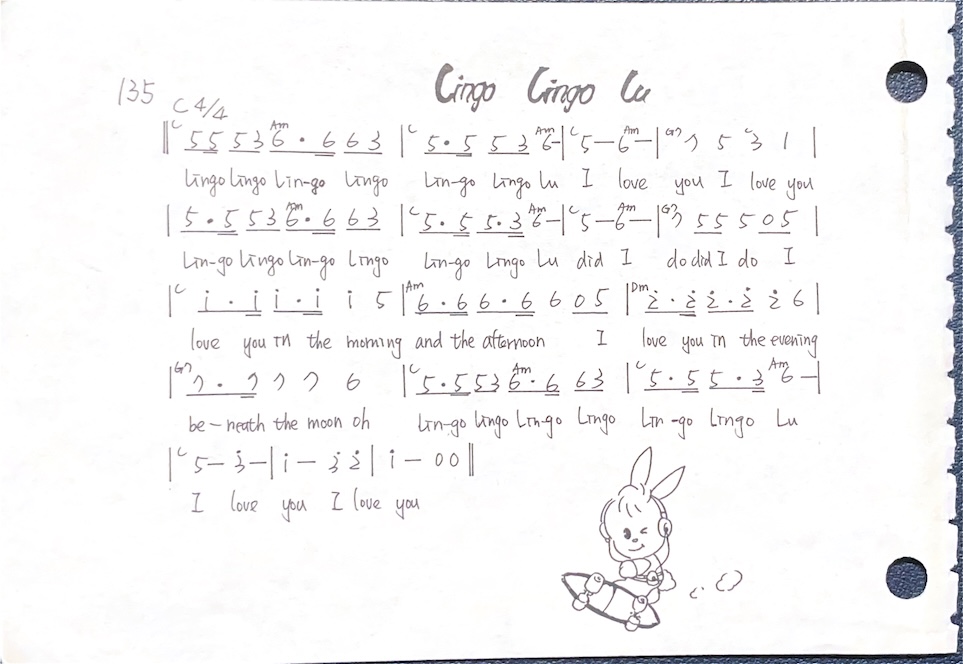 Lingo Lingo Lu
135
C 4/4
‖ C 55 53 Am 6 · 6 63 | C 5 · 5 53 Am 6 – | C 5 – Am 6 – | G7 7 5 C 3 1 |
Lingo Lingo Lin-go Lingo Lin-go Lingo Lu I love you I love you
| 5 · 5 53 Am 6 · 6 63 | C 5 · 5 5 · 3 Am 6 – | C 5 – Am 6 – | G7 7 55 5 05 |
Lin-go Lingo Lin-go Lingo Lin-go Lingo Lu did I do did I do I
| C i · i i · i i 5 | Am 6 · 6 6 · 6 6 05 | Dm 2̇ · 2̇ 2̇ · 2̇ 2̇ 6 |
love you in the morning and the afternoon I love you in the evening
| G7 7 · 7 7 7 6 | C 5 · 5 53 Am 6 · 6 63 | C 5 · 5 5 · 3 Am 6 – |
be-neath the moon oh Lin-go Lingo Lin-go Lingo Lin-go Lingo Lu
| C 5 – 3̇ – | i – 3̇ 2̇ | i – 00 ‖
I love you I love you